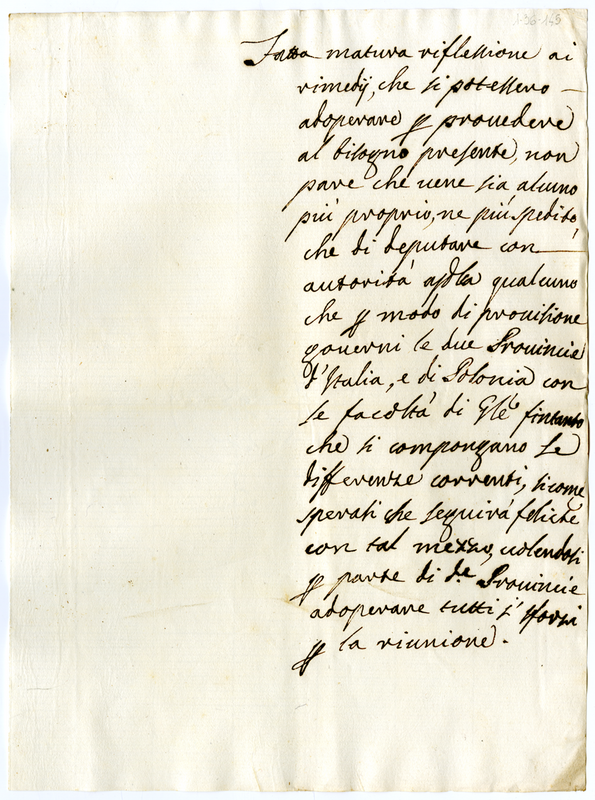 1-36-145
Fatta matura riflessione ai
rimedij, che si potessero
adoperare ꝑ prouedere
al bisogno presente, non
pare che uene sia alcuno
più proprio, ne più spedito,
che di deputare con
autorità qualcuno
che ꝑ modo di prouisione
gouerni le due Prouincie
d'Italia, e di Polonia con
le facoltà di Gle fintanto
che si compongano le
differenze correnti, sicome
sperasi che seguirà felicite
con tal mezzo, uolendosi
ꝑ parte di de Prouincie
adoperare tutti i sforzi
ꝑ la riunione.